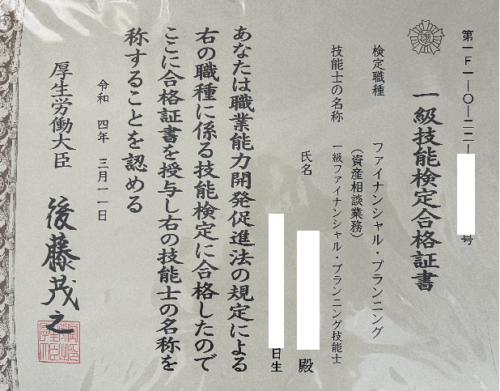 第一F一—〇—二二—
号
一級技能検定合格証書
検定職種 ファイナンシャル・プランニング
(資産相談業務)
技能士の名称 一級ファイナンシャル・プランニング技能士
氏名
殿
日生
あなたは職業能力開発促進法の規定による
右の職種に係る技能検定に合格したので
ここに合格証書を授与し右の技能士の名称を
称することを認める
令和 四年 三月一一日
厚生労働大臣 後藤茂之